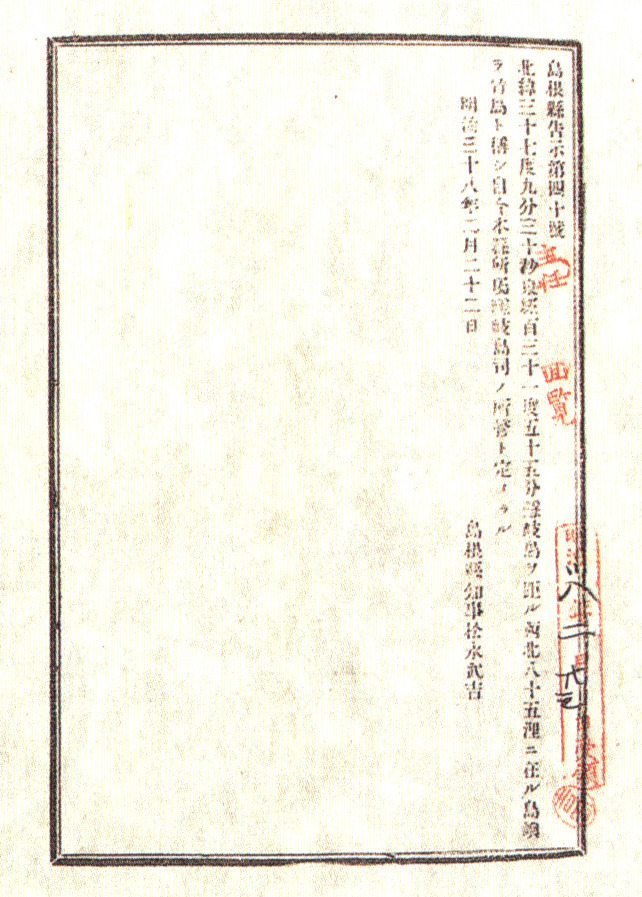 島根縣告示第四十號
北緯三十七度九分三十秒東經百三十一度五十五分隱岐島ヲ距ル西北八十五浬ニ在ル島嶼
ヲ竹島ト稱シ自今本縣所屬隱岐島司ノ所管ト定メラル
明治三十八年二月二十二日
島根縣知事松永武吉
主任
回覧